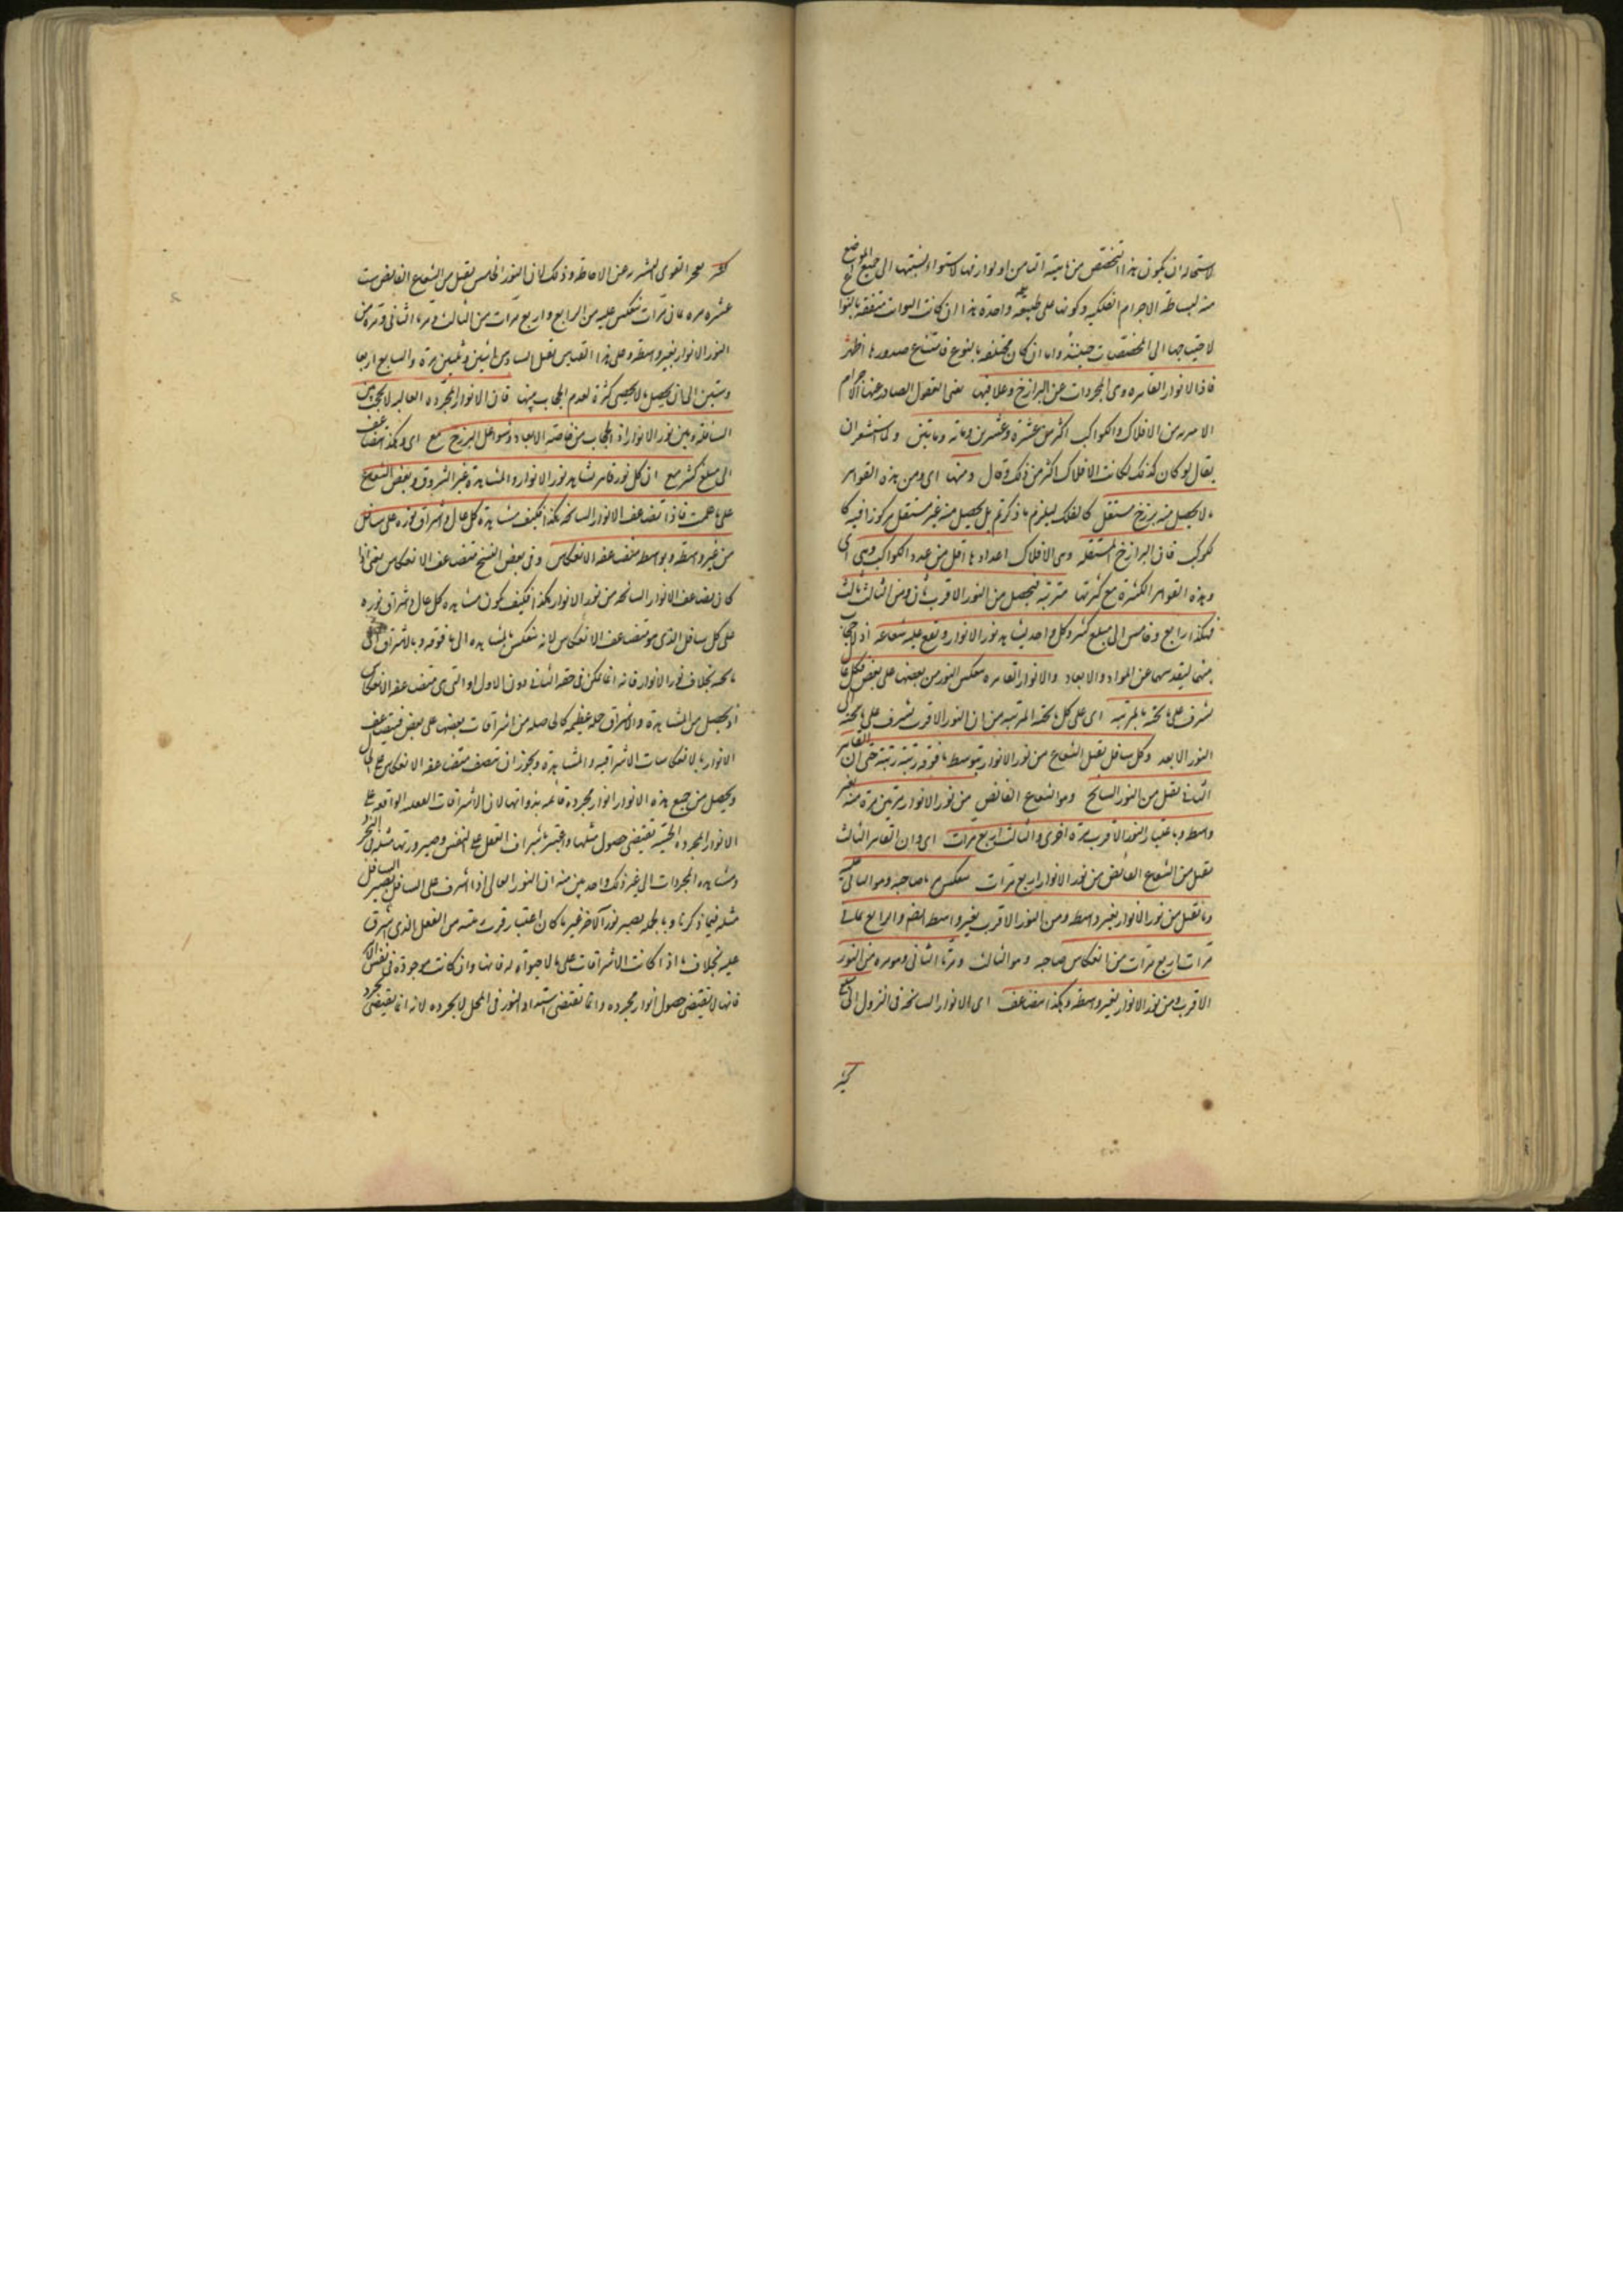 لاستحالة ان يكون هذا التخصص من ماهيته او لوازمها لاستواء نسبتها الى جميع المواضع
منه لبساطة الاجرام الفلكية وكونها على طبيعة واحدة هذا ان كانت الثوابت متفقة بالنوع
لاحتياجها الى المخصصات حينئذ واما ان كان مختلفة بالنوع فامتناع صدورها اظهر
فاذا الانوار القاهره وهى المجردات عن البرازخ وعلايقها يعنى العقول الصادر عنها الاجرام
الاثيريه من الافلاك والكواكب اكثر من عشرة وعشرين ومائه ومايتين ولما استشعر ان
يقال لو كان كذلك لكانت الافلاك اكثر من ذلك قال ومنها اى ومن هذه القواهر
ما لا يحصل منه برزخ مستقل كالفلك ليلزم ما ذكرتم بل يحصل منه غير مستقل مركوز فيه كا
لكوكب فان البرازخ المستقله وهى الافلاك اعدادها اقل من عدد الكواكب وهى اى
وهذه القواهر الكثرة مع كثرتها مترتبه فيحصل من النور الاقرب ثان ومن الثالث
فهكذا رابع وخامس الى مبلغ كثير وكل واحد يشاهد نور الانوار ويقع عليه شعاعه اذ لا حجاب
بينها لتقدسها عن المواد والابعاد والانوار القاهره ينعكس النور من بعضها على بعض فكل عال
يشرق على ما تحته بالمرتبه اى على كل ما تحته المرتبه من ان النور الاقرب يشرق على ما تحته الى
النور الابعد وكل سافل يقبل الشعاع من نور الانوار بتوسط ما فوقه رتبة رتبة حتى ان القاهر
الثانى يقبل من النور السانح وهو الشعاع الفائض من نور الانوار مرتين مرة منه بغير
واسطه وباعتبار النور الاقرب مرة اخرى والثالث اربع مرات اى وان القاهر الثالث
يقبل من الشعاع الفائض من نور الانوار اربع مرات ينعكس مرتا صاحبه وهو الثانى عليه
وما يقبل من نور الانوار بغير واسطه ومن النور الاقرب بغير واسطه ايضا والرابع ثمانى
مرات اربع مرات من انعكاس صاحبه وهو الثالث ومرتا الثانى ومره من النور
الاقرب ومن نور الانوار بغير واسطه وهكذا يتضاعف اى الانوار السانحه فى النزول الى مبلغ
كثير
كثير يعجز القوى البشريه عن الاحاطه وذلك لان النور الخامس يقبل من الشعاع الفايض ست
عشره مره ثمانى مرات تنعكس عليه من الرابع واربع مرات من الثالث ومرتا الثانى ومره من
النور الانوار بغير واسطه وعلى هذا القياس يقبل السادس اثنين وثلثين مرة والسابع اربعا
وستين الى ان يحصل ما لا يحصى كثرة لعدم الحجاب بينها فان الانوار المجرده العاليه لا تحجب بين
السافله وبين نور الانوار اذ الحجاب من خاصيه الابعاد وشواغل البرزخ مع اى وهكذا يتضاعف
الى مبلغ كثير مع ان كل نور قاهر يشاهد نور الانوار والمشاهدة غير الشروق وفيض الشعاع
على ما علمت فاذا تضاعف الانوار السانحه هكذا فكيف مشاهدة كل عال واشراق نوره على سافل
من غير واسطه وبواسطه متضاعفه الانعكاس وفى بعض النسخ متضاعف الانعكاس يعنى اذا
كان تضاعف الانوار السانحه من نور الانوار هكذا فكيف يكون مشاهده كل عال واشراق نوره
على كل سافل الذى هو متضاعف الانعكاس لانه ينعكس بالمشاهده الى ما فوقه وبالاشراق الى
ما تحته بخلاف نور الانوار فانه انما يمكن فى حقه الثانى دون الاول او التى هى متضاعفه الانعكاس
اذ يحصل من المشاهدة والاشراق جمله عظيمه كالحاصله من اشراقات بعضها على بعض فيتضاعف
الانوار بالانعكاسات الاشراقيه والمشاهدة ويجوز ان تتصف متضاعفه الانعكاس على الحال
ويحصل من جميع هذه الانوار انوار مجردة قائمه بذواتها لان الاشراقات العقليه الواقعه على
الانوار المجرده الحيّه تقتضى حصول مثلها واعتبر باشراق العقل على النفس وصيرورتها مثله فى التجرد
ومشاهده المجردات الى غير ذلك واحدس منه ان النور العالى اذا اشرق على السافل يصير السافل
مثله فيما ذكرنا وبالجمله يصير نورا آخر غير ما كان باعتبار قربت منه من العقل الذى اشرق
عليه بخلاف ما اذا كانت الاشراقات على ما لا حيوة له فانها وان كانت موجودة فى نفس الامر
فانها لا تقتضى حصول انوار مجرده وانما تقتضى استعداد النور فى المحل لا مجرده لانه انما يقتضى